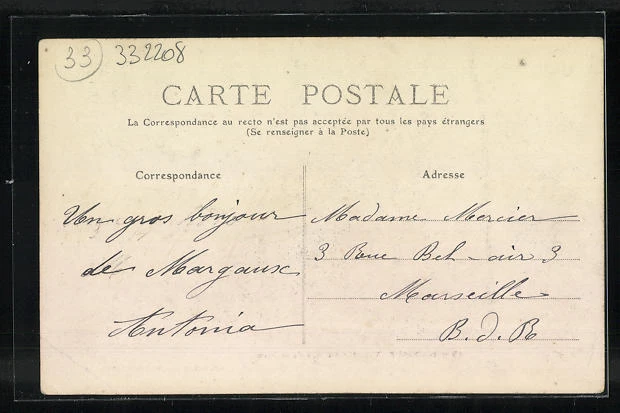 33 332208
CARTE POSTALE
La Correspondance au recto n'est pas acceptée par tous les pays étrangers
(Se renseigner à la Poste)
Correspondance
Un gros bonjour
de Margaux
Antonia
Adresse
Madame Mercier
3 Rue Bel-air 3
Marseille
B. d. R